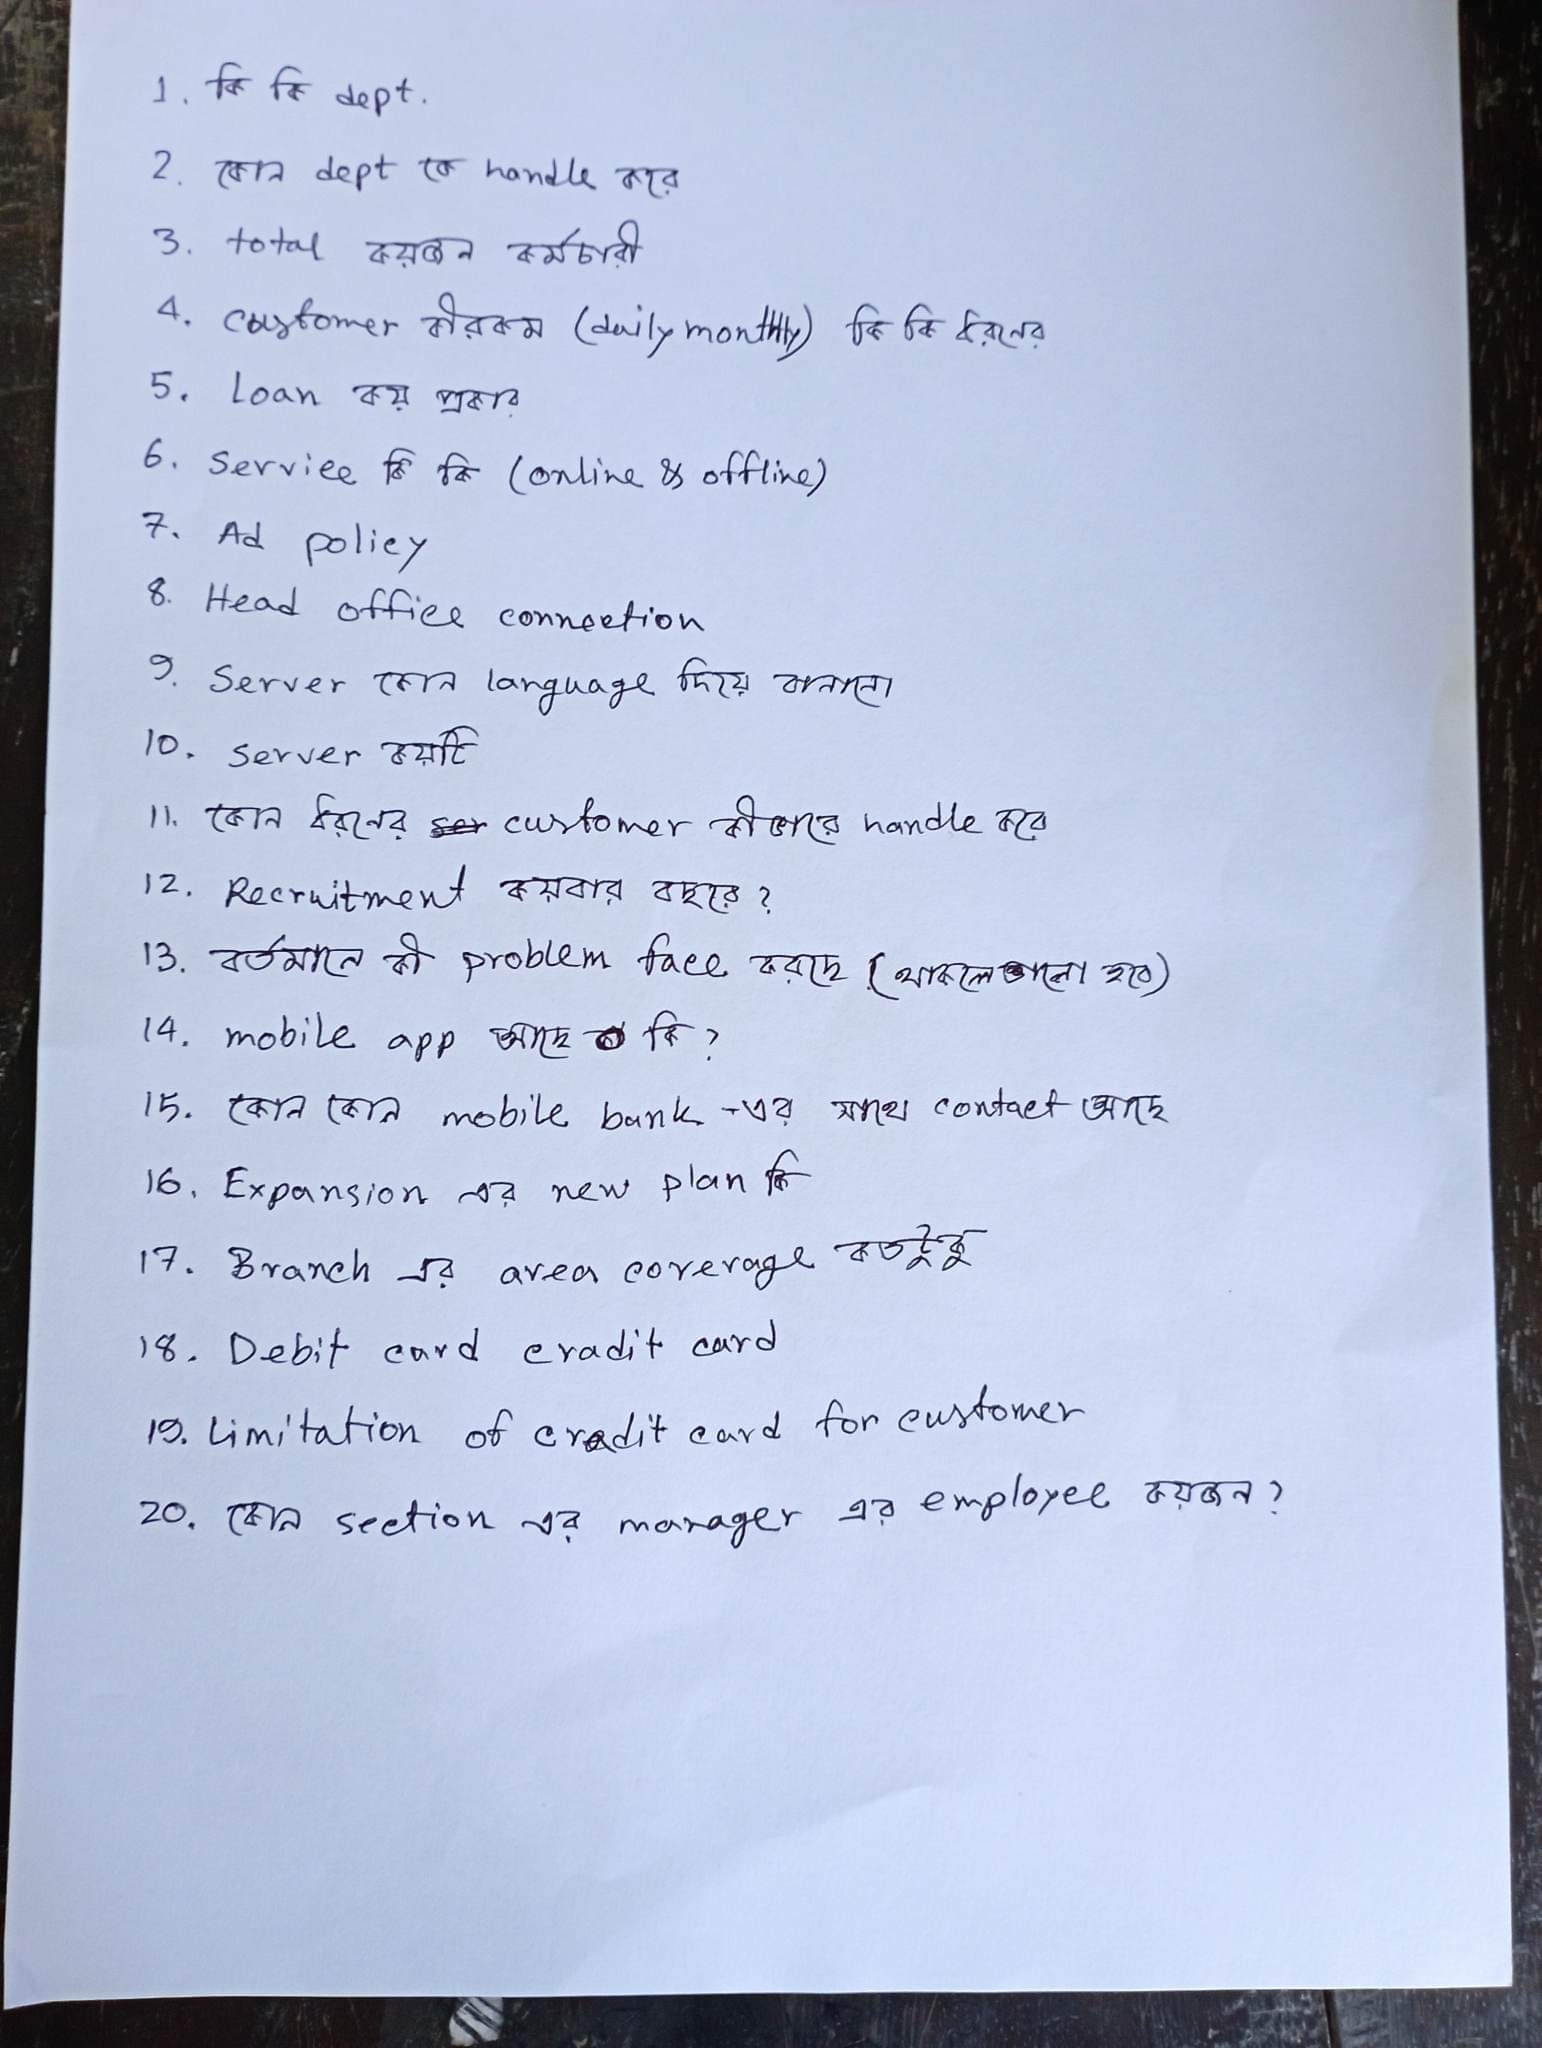 1. কি কি dept.
2. কোন dept কে handle করে
3. total কয়জন কর্মচারী
4. customer কীরকম (daily monthly) কি কি ধরনের
5. Loan কয় প্রকার
6. Service কি কি (online & offline)
7. Ad policy
8. Head office connection
9. Server কোন language দিয়ে বানানো
10. server কয়টি
11. কোন ধরনের customer কীভাবে handle করে
12. Recruitment কয়বার বছরে?
13. বর্তমানে কী problem face করছে (থাকলে ভালো হবে)
14. mobile app আছে কি?
15. কোন কোন mobile bank -এর সাথে contact আছে
16. Expansion এর new plan কি
17. Branch এর area coverage কতটুকু
18. Debit card cradit card
19. Limitation of credit card for customer
20. কোন section এর manager এর employee কয়জন?